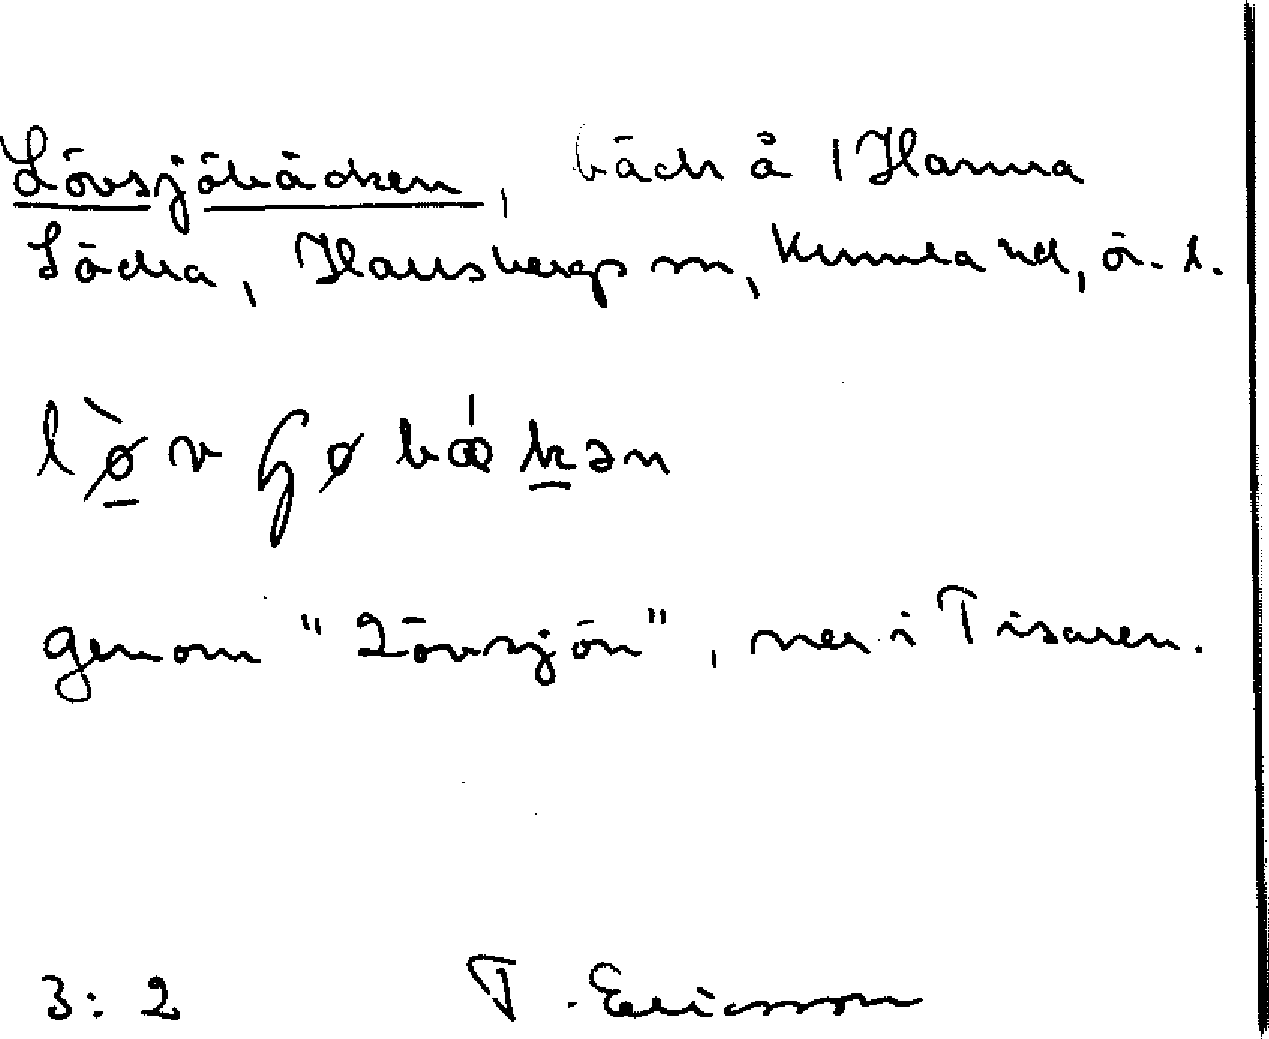 Lövsjöbäcken, bäck å Hanna
Södra, Hallsbergs sn, Kumla hd, ör. l.
lø̀vʃøbækən
genom "Lövsjön", ner i Tisaren.
3:2 T. Ericsson